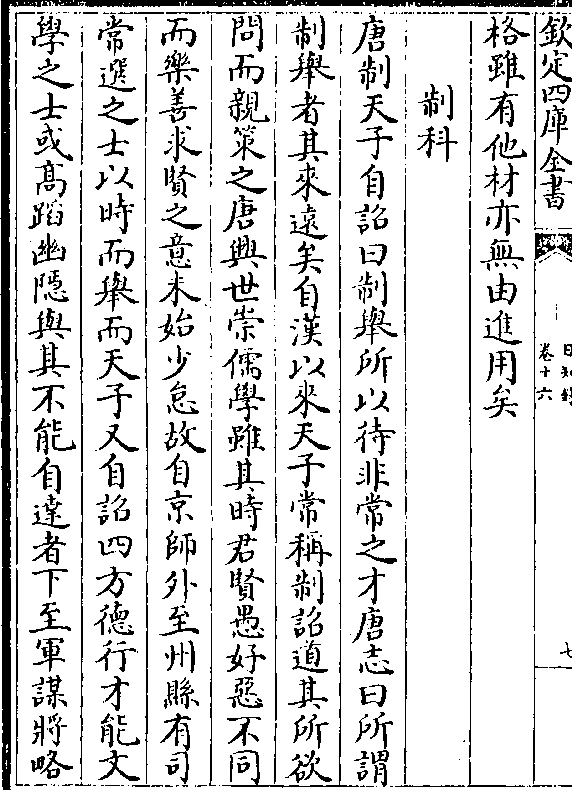 欽定四庫全書
日知錄
卷十六
七
格雖有他材亦無由進用矣
制科
唐制天子自詔曰制舉所以待非常之才唐志曰所謂
制舉者其來遠矣自漢以來天子常稱制詔道其所欲
問而親策之唐興世崇儒學雖其時君賢愚好惡不同
而樂善求賢之意未始少怠故自京師外至州縣有司
常選之士以時而舉而天子又自詔四方德行才能文
學之士或髙蹈幽隠與其不能自達者下至軍謀將略